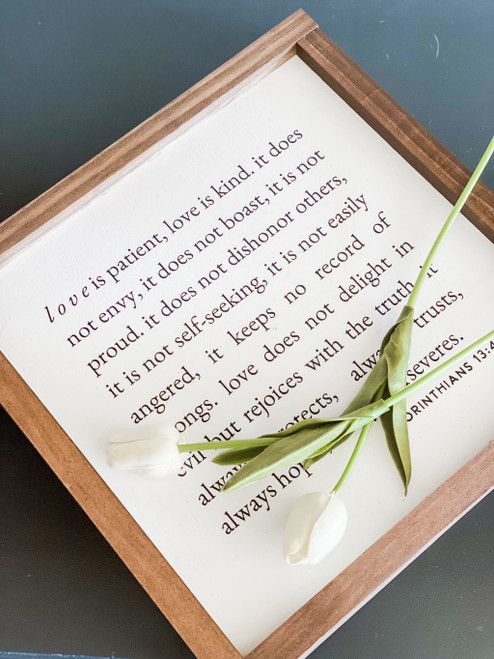 love is patient, love is kind. it does
not envy, it does not boast, it is not
proud. it does not dishonor others,
it is not self-seeking, it is not easily
angered, it keeps no record of
ongs. love does not delight in
evil but rejoices with the truth. it
otects, trusts,
always hop severes.
ORINTHIANS 13:4